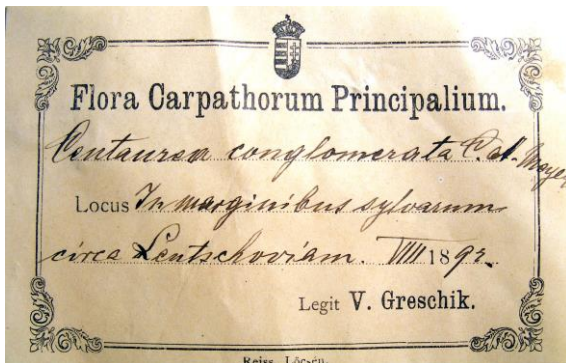 Flora Carpathorum Principalium.
Centaurea conglomerata C. a. Meyer
Locus In marginibus sylvarum
circa Leutschoviam. VIII 1892
Legit V. Greschik.
Reiss, Löcsén.